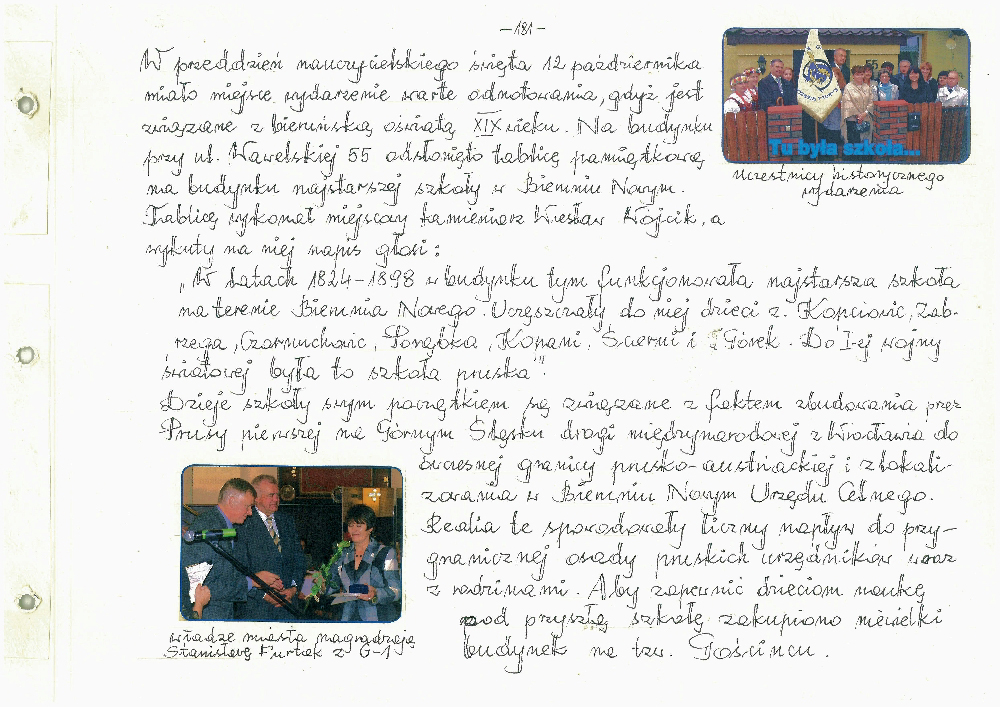 -181-
W przeddzień nauczycielskiego święta 12 października
miało miejsce wydarzenie warte odnotowania, gdyż jest
związane z bieruńską oświatą XIX wieku. Na budynku
przy ul. Wawelskiej 55 odsłonięto tablicę pamiątkową
na budynku najstarszej szkoły w Bieruniu Nowym.
Tablicę wykonał miejscowy kamieniarz Wiesław Wójcik, a
wykuty na niej napis głosi:
„W latach 1824-1898 w budynku tym funkcjonowała najstarsza szkoła
na terenie Bierunia Nowego. Uczęszczały do niej dzieci z: Kopciowic, Zab-
rzega, Czarnuchowic, Porąbka, Kopani, Ścierni i Górek. Do I-ej wojny
światowej była to szkoła pruska".
Dzieje szkoły swym początkiem są związane z faktem zbudowania przez
Prusy pierwszej na Górnym Śląsku drogi międzynarodowej z Wrocławia do
ówczesnej granicy prusko-austriackiej i zlokali-
zowania w Bieruniu Nowym Urzędu Celnego.
Realia te spowodowały liczny napływ do przy-
granicznej osady pruskich urzędników wraz
z rodzinami. Aby zapewnić dzieciom naukę
pod przyszłą szkołę zakupiono niewielki
budynek na tzw. Gościńcu.
55
Tu była szkoła...
Uczestnicy historycznego
wydarzenia
władze miasta nagradzają
Stanisławę Furtak z G-1